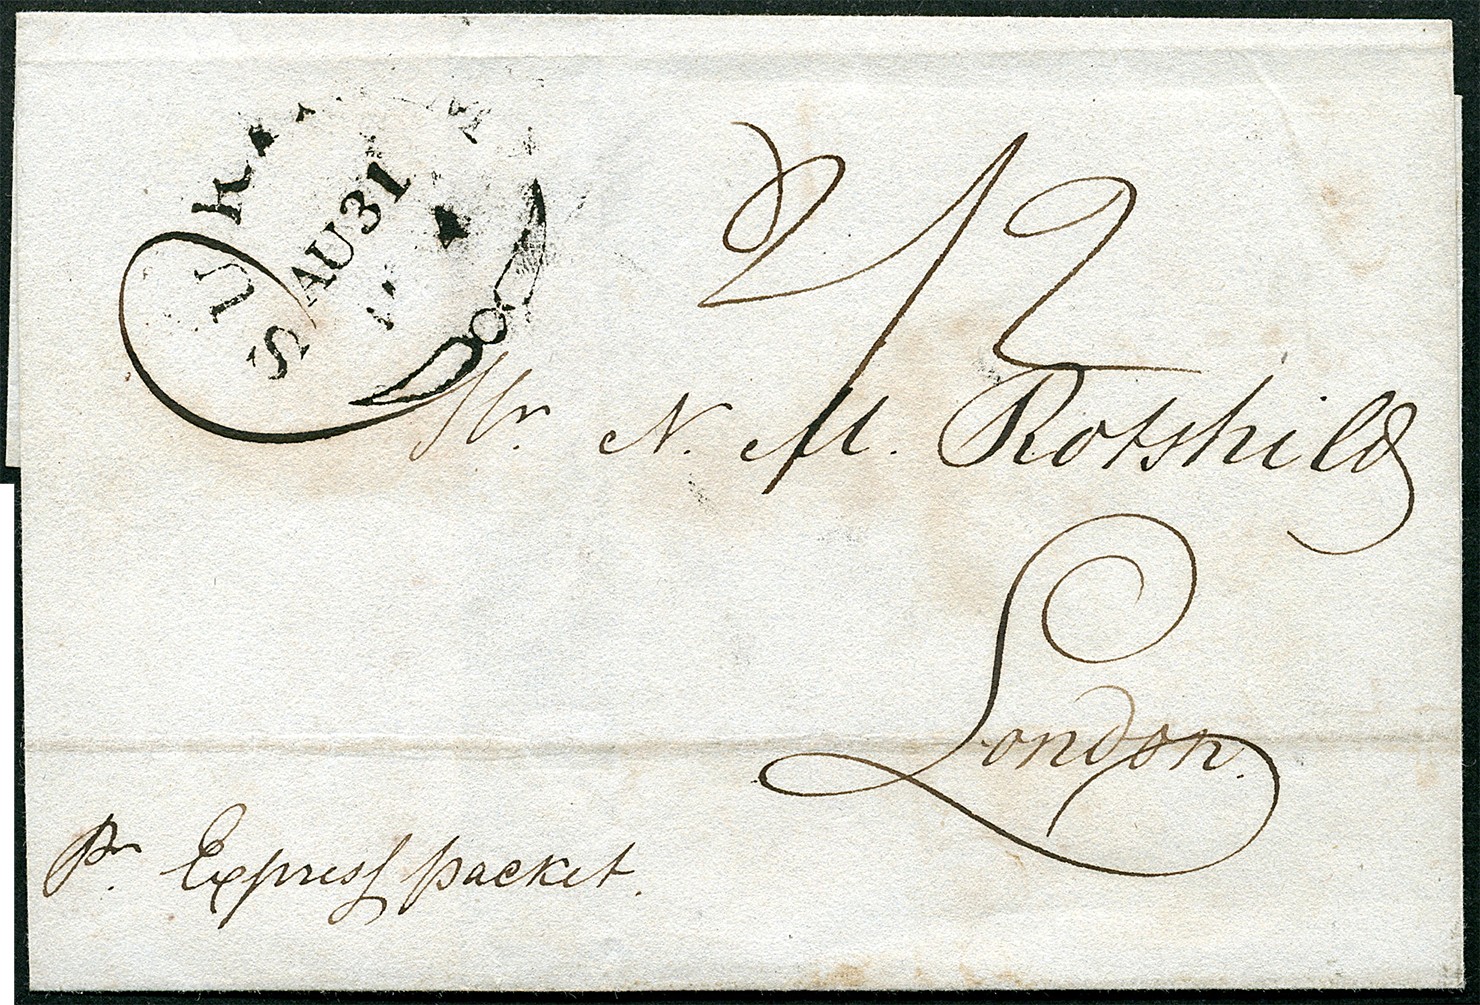 AU 31
2/2
Hr. N. M. Rotshild
London.
pr. Express packet.